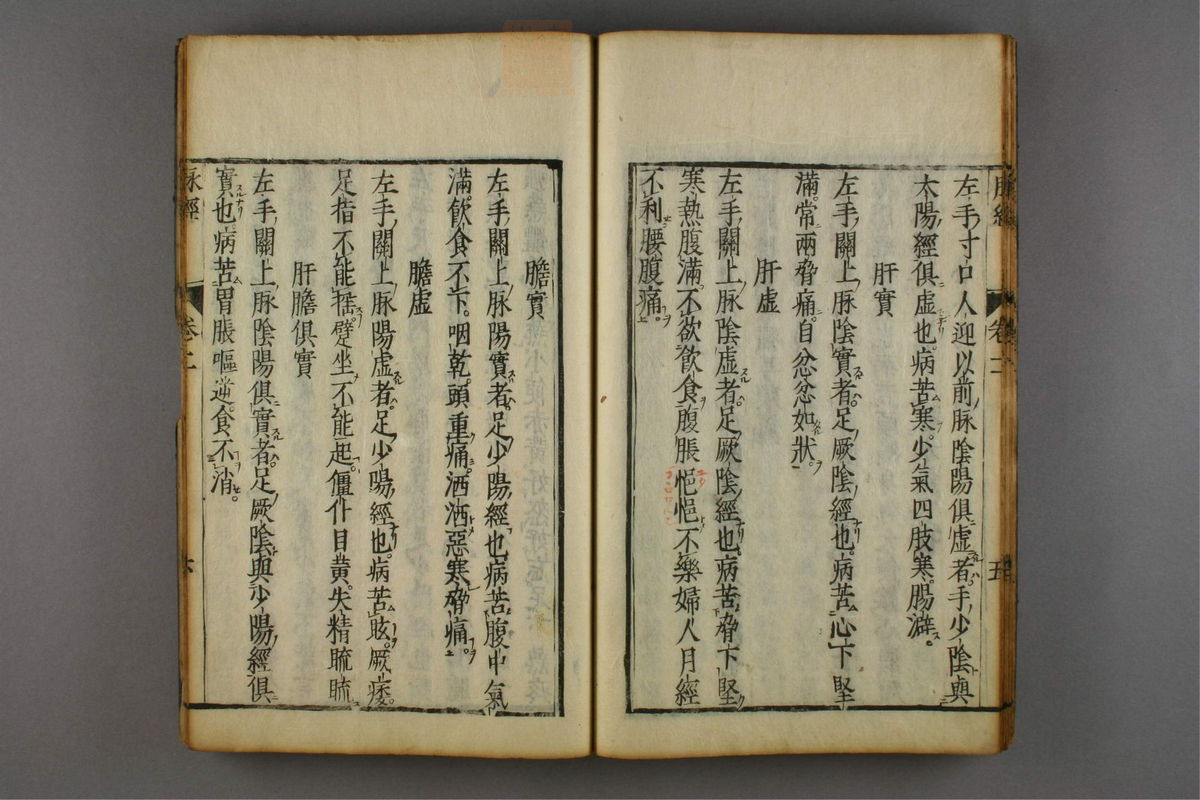 脉經 卷二 五
左手寸口人迎以前脉陰陽俱虛者手少陰與
太陽經俱虛也病苦寒少氣四肢寒腸澼
肝實
左手關上脉陰實者足厥陰經也病苦心下堅
滿常兩脅痛自忿忿如狀
肝虛
左手關上脉陰虛者足厥陰經也病苦脅下堅
寒熱腹滿不欲飲食腹脹悒悒不樂婦人月經
不利腰腹痛
膽實
左手關上脉陽實者足少陽經也病苦腹中氣
滿飲食不下咽乾頭重痛洒洒惡寒脅痛
膽虛
左手關上脉陽虛者足少陽經也病苦眩厥痿
足指不能搖躄坐不能起僵仆目黃失精䀮䀮
肝膽俱實
左手關上脉陰陽俱實者足厥陰與少陽經俱
實也病苦胃脹嘔逆食不消
脉經 卷二 六